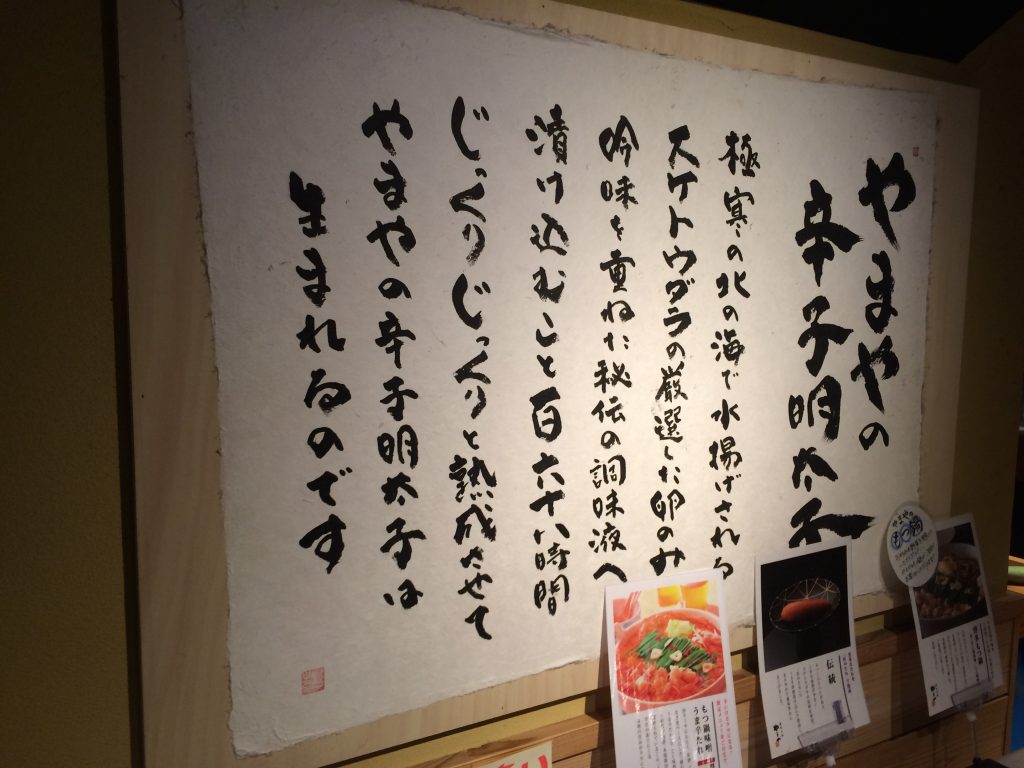 やまやの
辛子明太子
極寒の北の海で水揚げされる
スケトウダラの厳選した卵のみ
吟味を重ねた秘伝の調味液へ
漬け込むこと百六十八時間
じっくりじっくりと熟成させて
やまやの辛子明太子は
生まれるのです
もつ鍋味噌
うま辛だれ
伝統
やまやの
もつ鍋